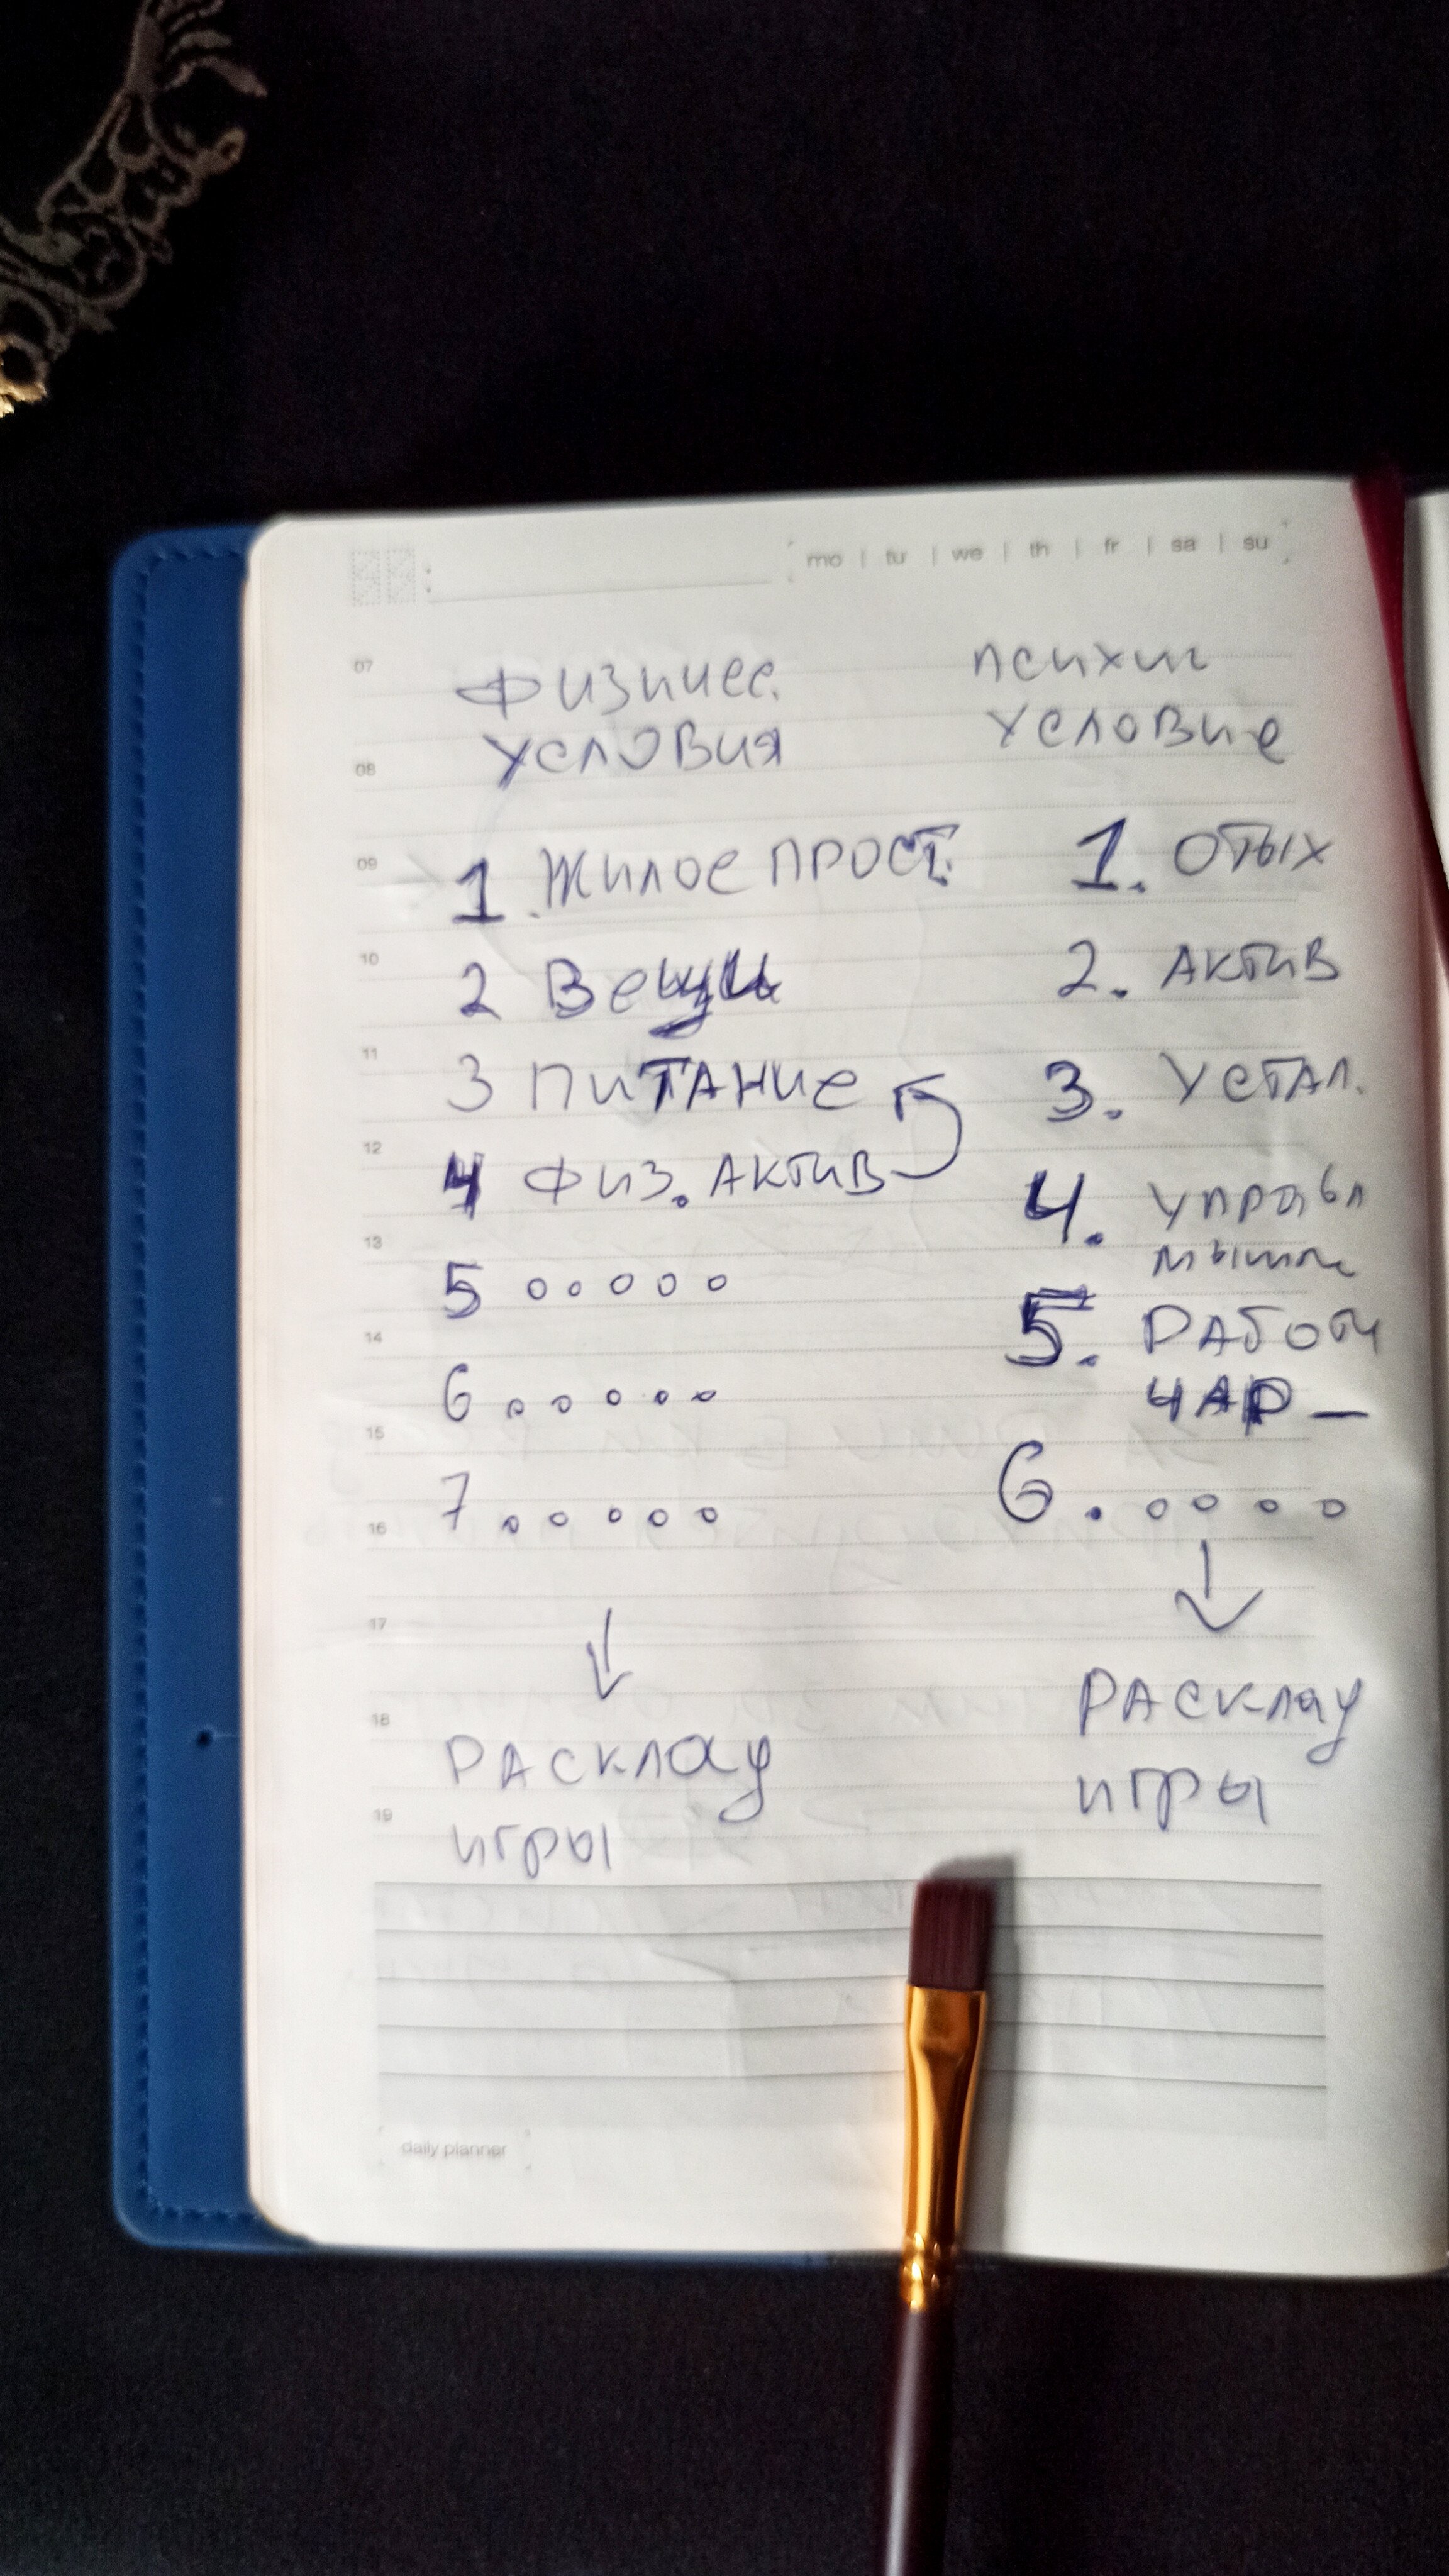 mo | tu | we | th | fr | sa | su
07
Физичес.
условия
08
09
1. Жилое прост.
10
2 Вещи
11
3 Питание
12
4 физ. актив
13
5 o o o o o
14
6 . o o o o o
15
7 . o o o o o
16
17
18
Расклад
игры
19
daily planner
психич
условие
1. отых
2. актив
3. устал.
4. управл
мышл
5. Работ
чар –
6. o o o o
Расклад
игры